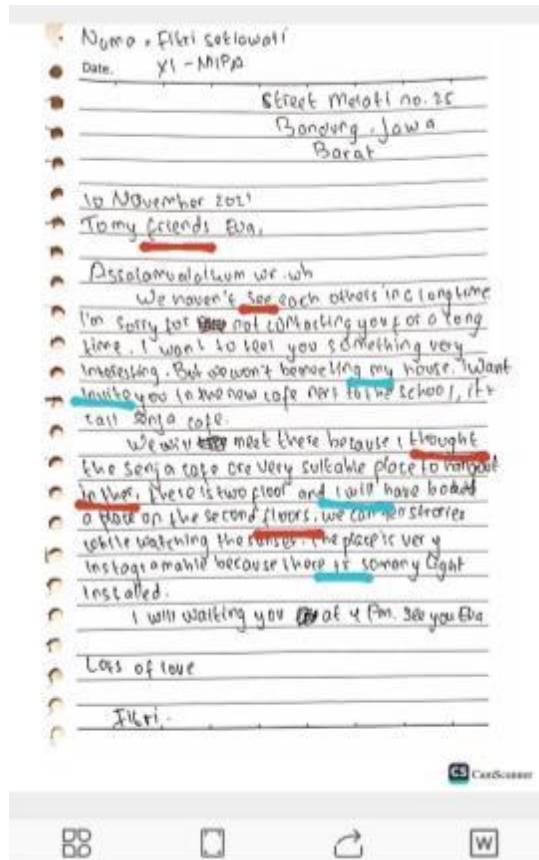 Nama. Fitri setiawati
Date. XI - MIPA
Street Melati no. 25
Bandung. Jawa
Barat
10 November 2021
To my friends Eva,
Assalamualaikum wr. wb
We haven't see each others in a long time
I'm sorry for not contacting you for a long
time. I want to tell you something very
interesting. But we won't be meeting my house. I want
invite you in the new cafe next to the school, it's
call senja cafe.
We will meet there because I thought
the senja cafe are very suitable place to hangout
in ther. There is two floor and I will have booked
a place on the second floors. we can stories
while watching the sunset. The place is very
instagramable because there is so many light
installed.
I will waiting you at 4 Pm. See you Eva
Lots of love
Fitri.
CS CamScanner
W